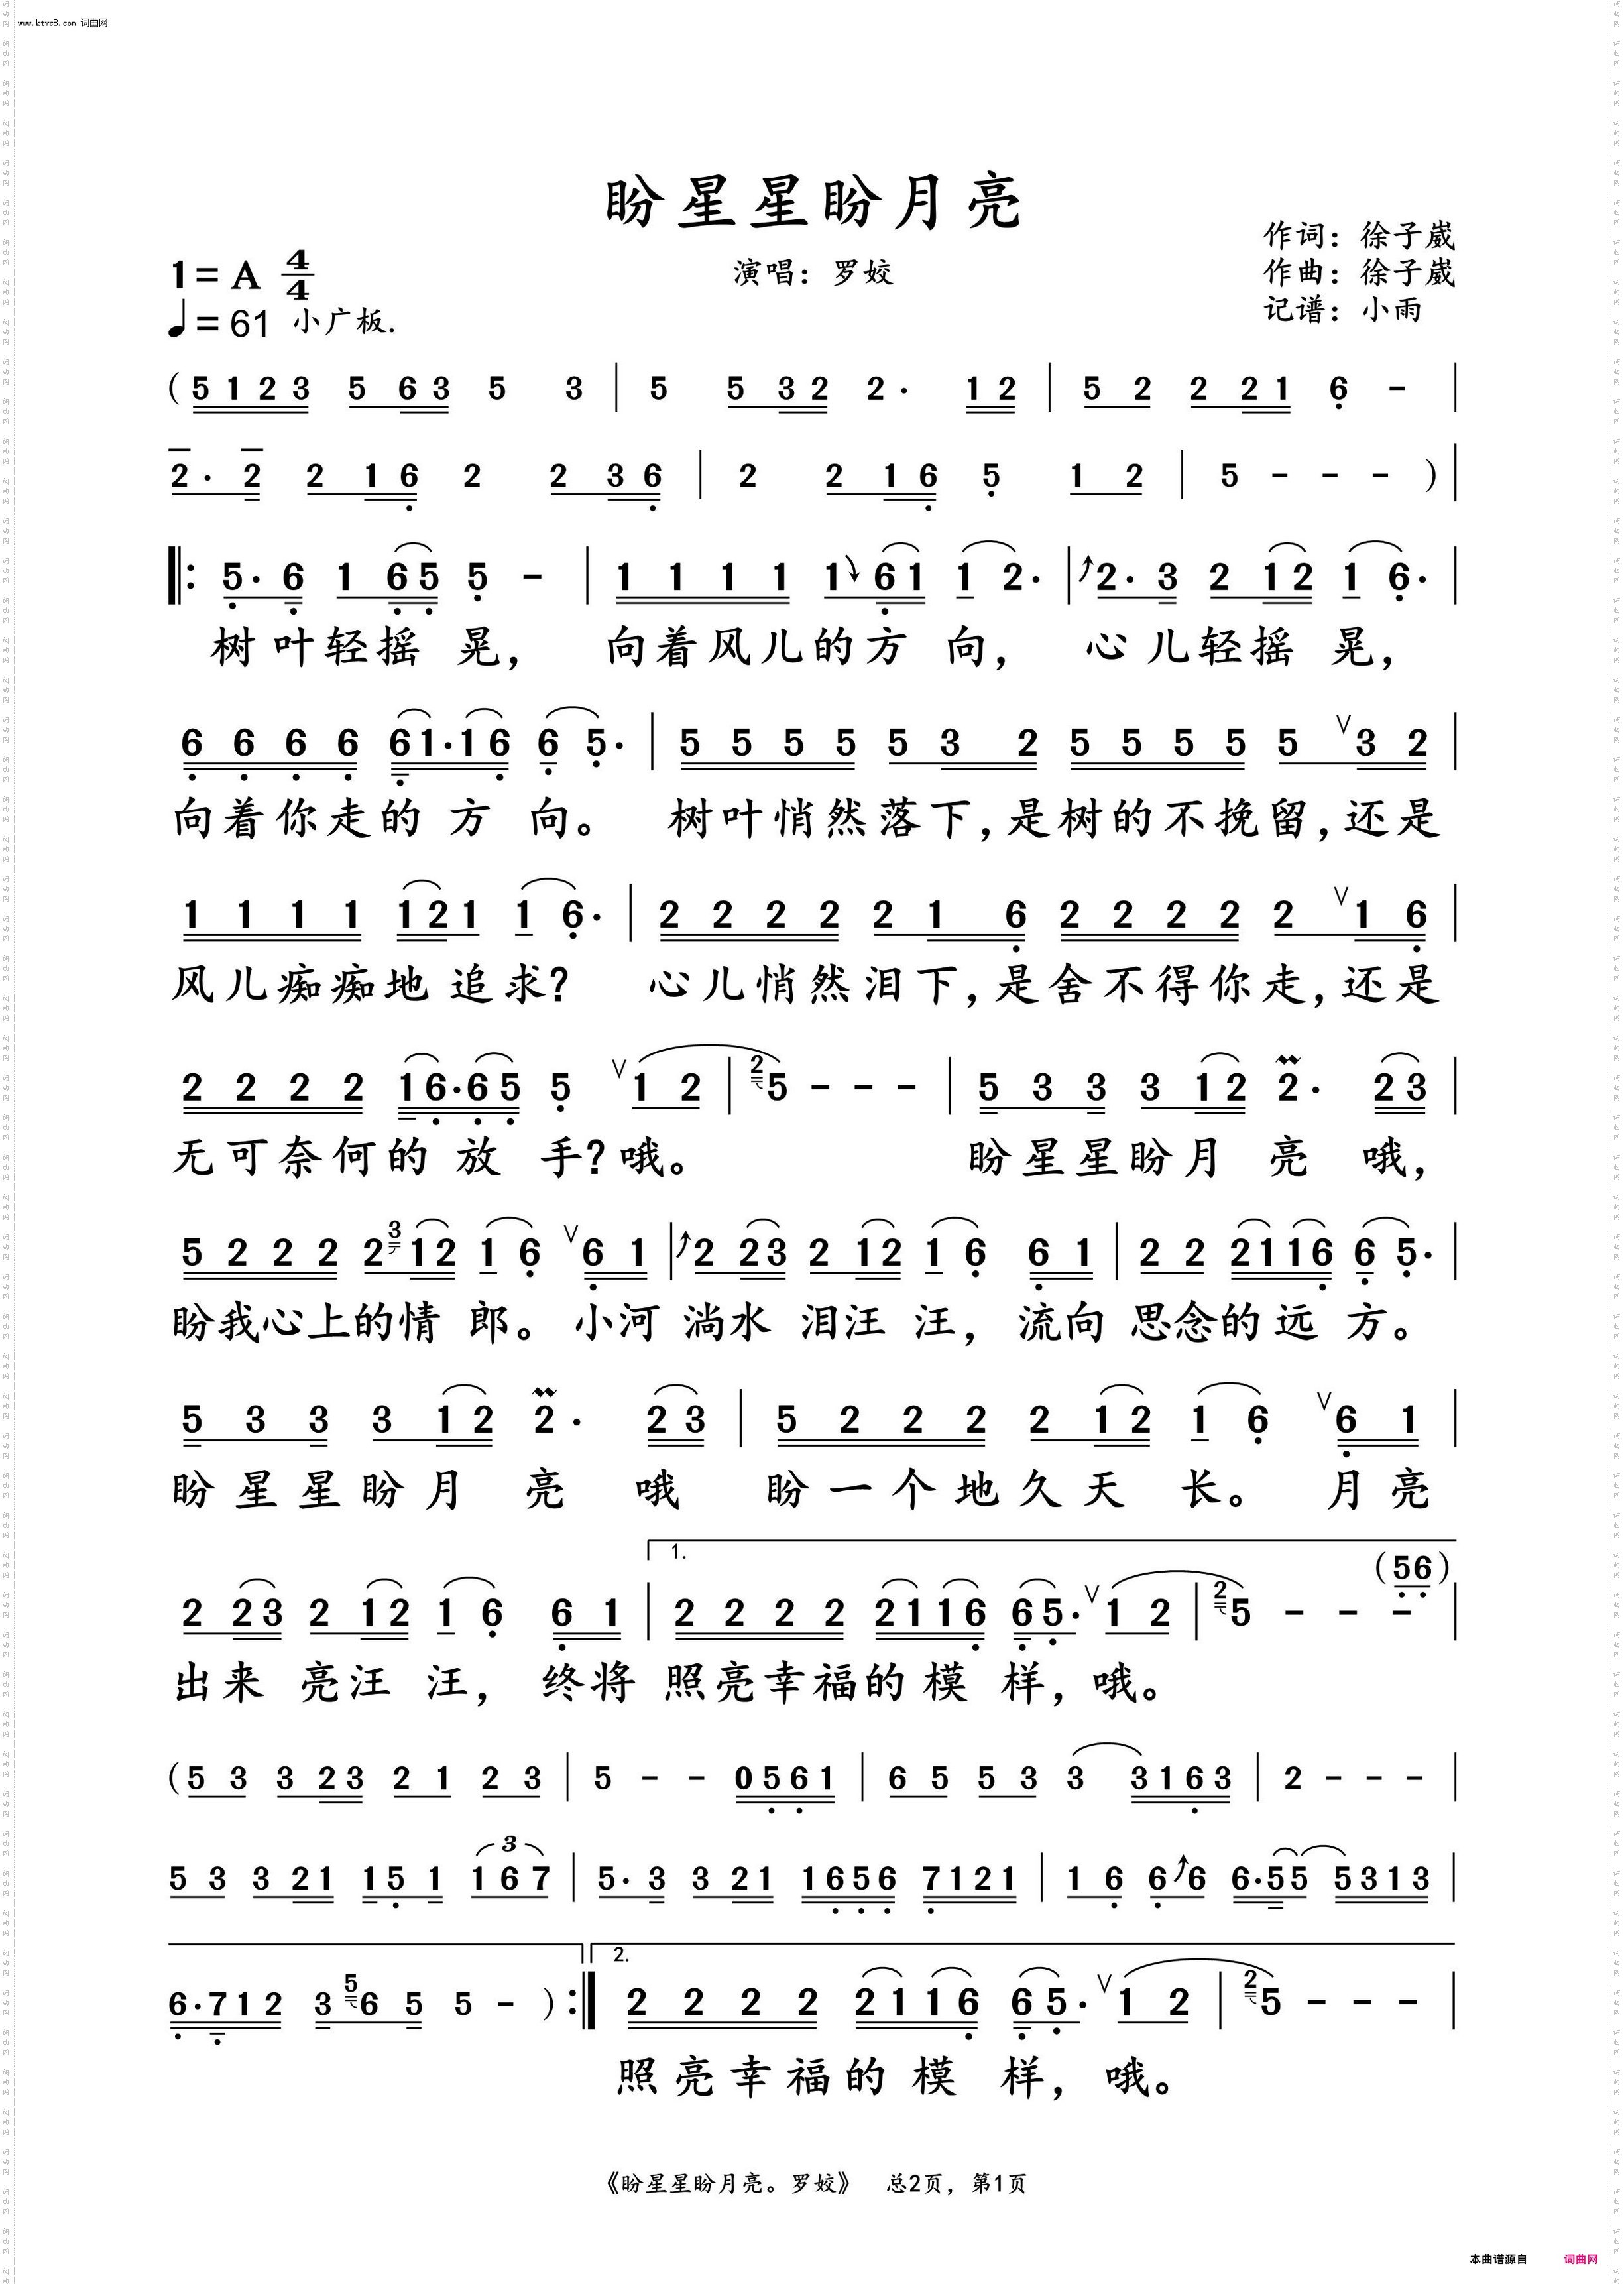 www.ktvc8.com 词曲网
盼星星盼月亮
作词：徐子崴
1=A 4/4 演唱：罗姣 作曲：徐子崴
♩=61 小广板. 记谱：小雨
(5 1 2 3 5 6 3 5 3 | 5 5 3 2 2· 1 2 | 5 2 2 2 1 6 - |
2· 2 2 1 6 2 2 3 6 | 2 2 1 6 5 1 2 | 5 - - - )|
‖: 5· 6 1 6 5 5 - | 1 1 1 1 1 6 1 1 2· | 2· 3 2 1 2 1 6· |
树叶轻摇 晃， 向着风儿的方 向， 心儿轻摇 晃，
6 6 6 6 6 1· 1 6 6 5· | 5 5 5 5 5 3 2 5 5 5 5 5 V 3 2 |
向着你走的 方 向。 树叶悄然落下，是树的不挽留，还是
1 1 1 1 1 2 1 1 6· | 2 2 2 2 2 1 6 2 2 2 2 2 V 1 6 |
风儿痴痴地 追求？ 心儿悄然泪下，是舍不得你走，还是
2 2 2 2 1 6· 6 5 5 V 1 2 | 2 5 - - - | 5 3 3 3 1 2 2· 2 3 |
无可奈何的 放 手？哦。 盼星星盼月 亮 哦，
5 2 2 2 2 3 1 2 1 6 V 6 1 | 2 2 3 2 1 2 1 6 6 1 | 2 2 2 1 1 6 6 5· |
盼我心上的情 郎。小河 淌水 泪汪 汪，流向 思念的远 方。
5 3 3 3 1 2 2· 2 3 | 5 2 2 2 2 1 2 1 6 V 6 1 |
盼星星盼月 亮 哦 盼一个地久天 长。 月亮
1. (5 6)
2 2 3 2 1 2 1 6 6 1 | 2 2 2 2 2 1 1 6 6 5· V 1 2 | 2 5 - - - |
出来 亮汪 汪，终将 照亮幸福的 模 样，哦。
(5 3 3 2 3 2 1 2 3 | 5 - - 0 5 6 1 | 6 5 5 3 3 3 1 6 3 | 2 - - - |
5 3 3 2 1 1 5 1 3 1 6 7 | 5· 3 3 2 1 1 6 5 6 7 1 2 1 | 1 6 6 6 6· 5 5 5 3 1 3 |
2.
6· 7 1 2 3 5 6 5 5 - ) :‖ 2 2 2 2 2 1 1 6 6 5· V 1 2 | 2 5 - - - |
照亮幸福的 模 样，哦。
《盼星星盼月亮。罗姣》 总2页，第1页
本曲谱源自 词曲网